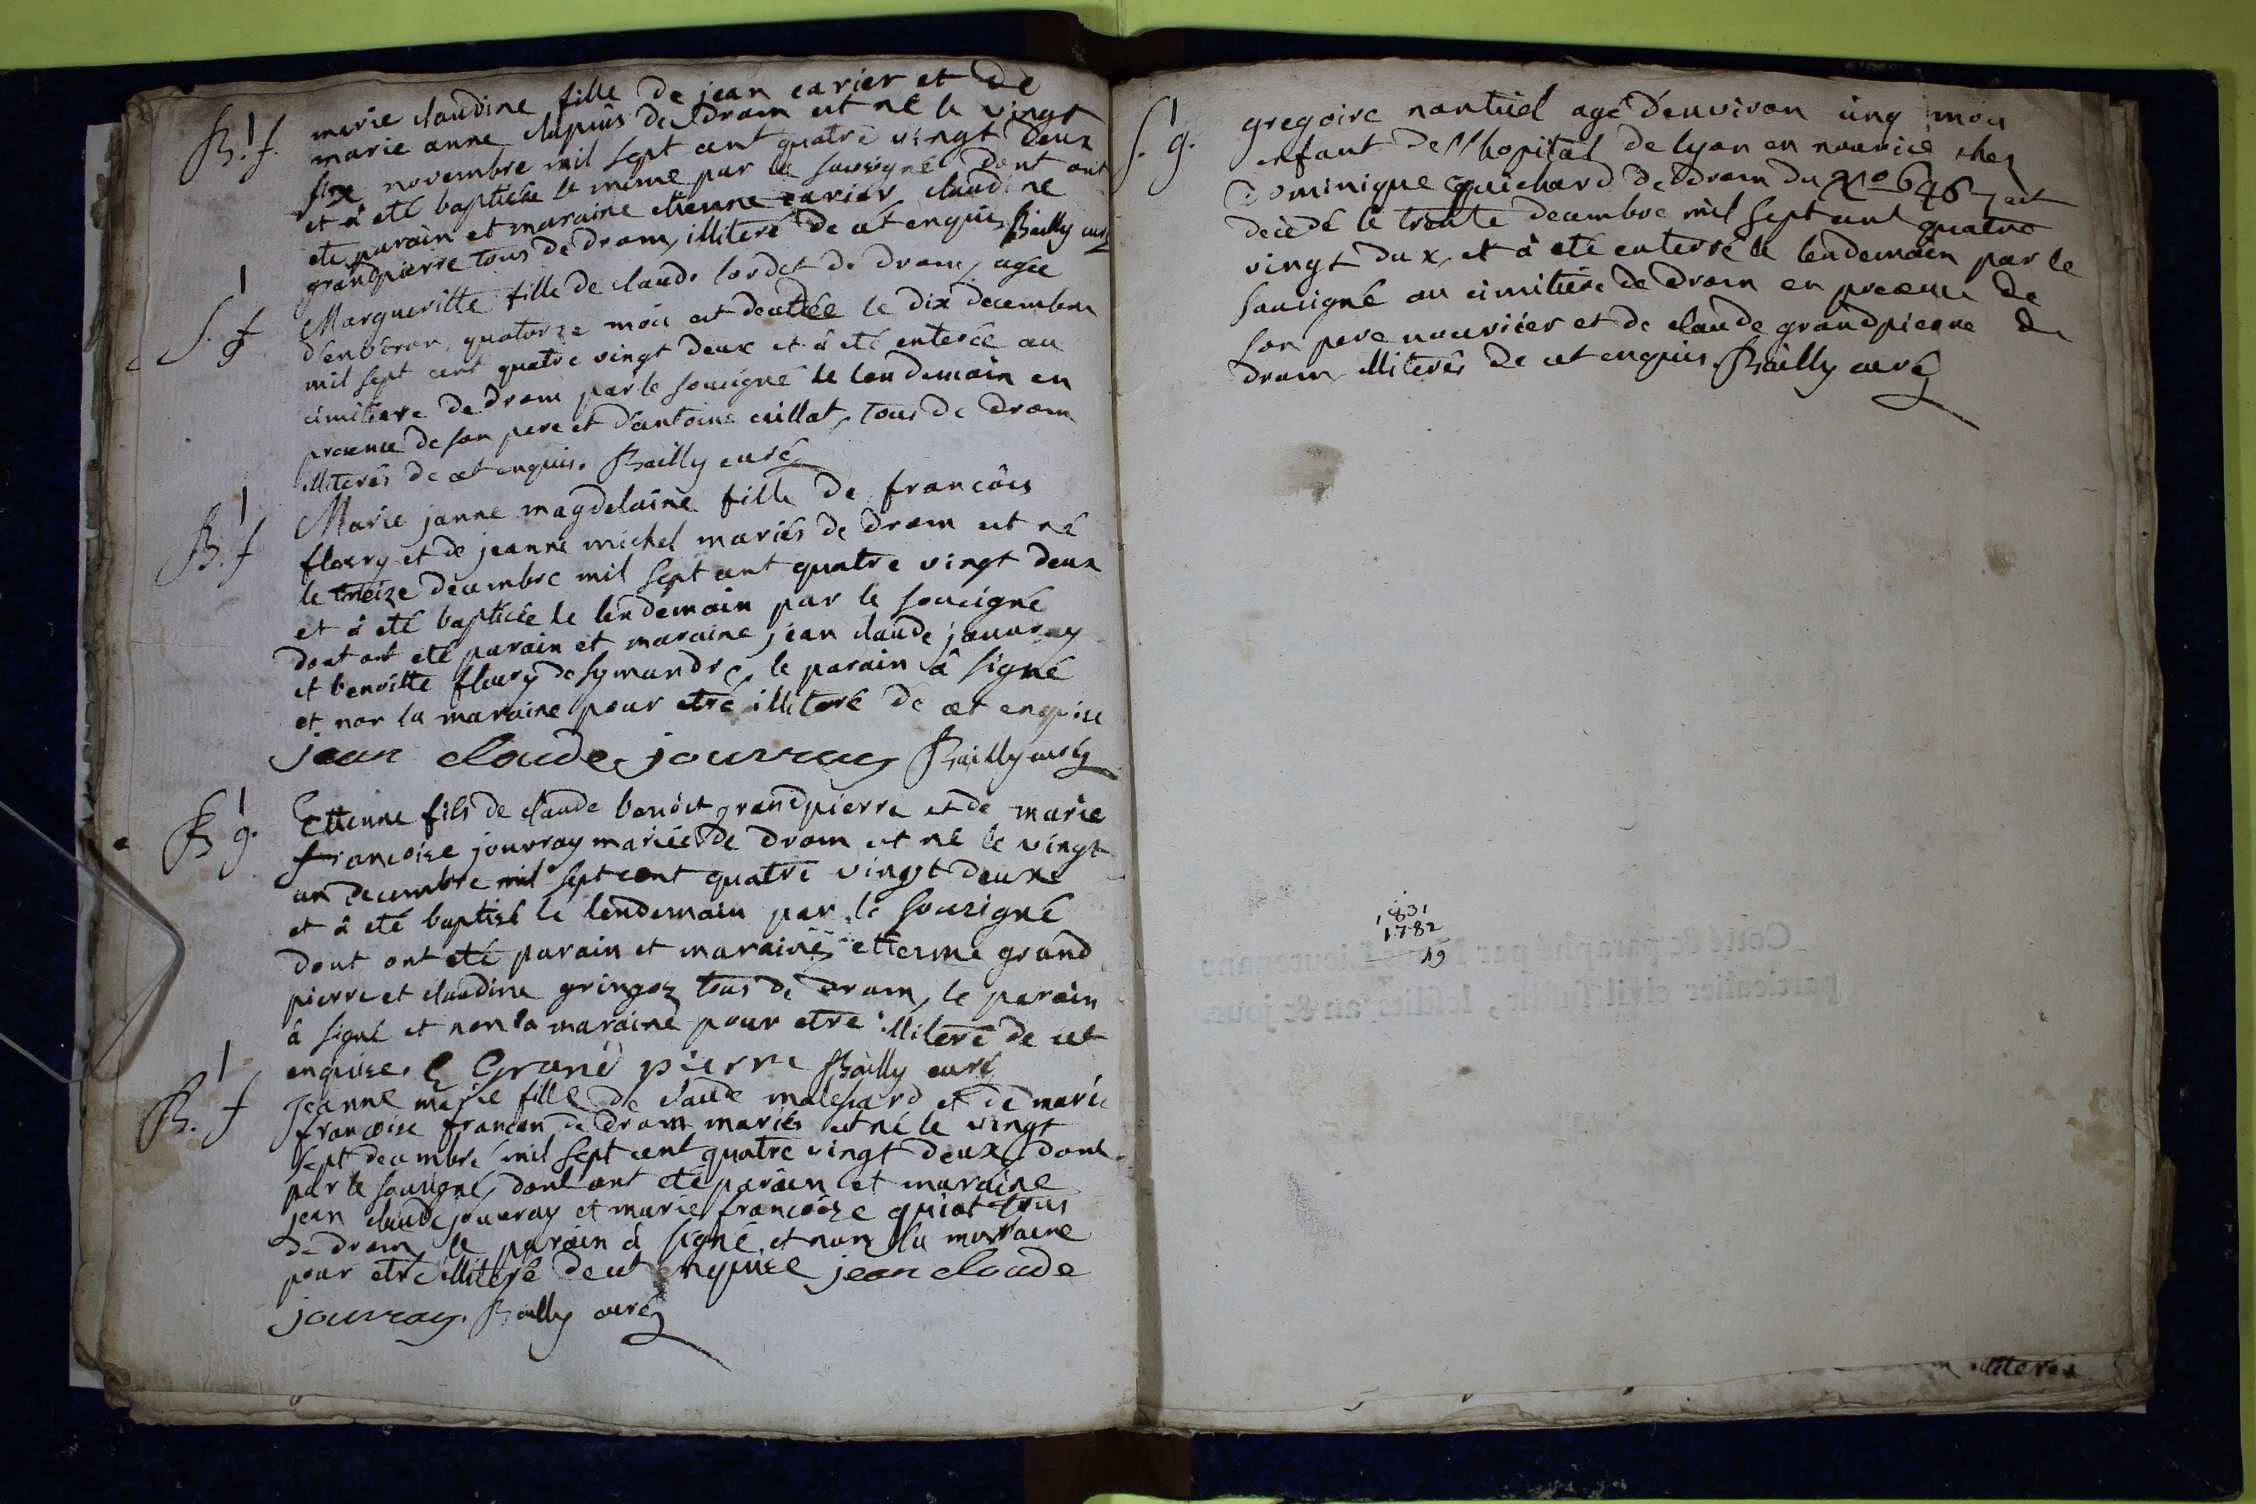 B. f.
marie claudine fille de jean carier et de
marie anne chapuis de drom est né le vingt
six novembre mil sept cent quatre vingt deux
et à eté baptisée le meme par le sousigné dont ont
eté parain et maraine etienne carier claudine
grandpierre tous de drom, illiteré de cet enquis Bailly curé
S. f
Margueritte fille de claude lordet de drom, agée
d'environ quatorze mois est decedée le dix decembre
mil sept cent quatre vingt deux et à eté enterée au
cimitiere de drom par le sousigné le lendemain en
presence de son pere et d'antoine cuillat, tous de drom
illiterés de cet enquis. Bailly curé
B. f
Marie janne magdelaine fille de francôis
floery et de jeanne michel mariés de drom est né
le treize decembre mil sept cent quatre vingt deux
et à eté baptisée le lendemain par le sousigné
dont ont eté parain et maraine jean claude jouvray
et benoitte floery de symandre, le parain â signé
et non la maraine pour etre illiteré de cet enquise
jean claude jouvray Bailly curé
B g.
Ettienne fils de claude benoit grandpierre et de marie
francoise jouvray mariés de drom est né le vingt
un decembre mil sept cent quatre vingt deux
et à eté baptisé le lendemain par le sousigné
dont ont eté parain et maraine ettienne grand
pierre et claudine gringoz tous de drom, le parain
à signé et non la maraine pour etre illiteré de cet
enquise. E Grand pierre Bailly curé
B. f
Jeanne marie fille de claude malchard et de marie
francoise francon de drom mariés est né le vingt
sept decembre mil sept cent quatre vingt deux, dont
par le sousigné, dont ont eté parain et maraine
jean claude jouvray et marie francoise guiot tous
de drom, le parain à signé et non la maraine
pour etre illiteré de cet enquise jean claude
jouvray. Bailly curé
S. g.
gregoire nantuel agé d'environ cinq mois
enfant de l'hopital de lyon en nourice chez
Dominique Guichard de drom du No 6467 est
decedé le trente decembre mil sept cent quatre
vingt dux, et à eté enterré le lendemain par le
sousigné au cimitiere de drom en presence de
son pere nouricier et de claude grandpierre de
drom, illiterés de cet enquis. Bailly curé
1831
1782
49
Cotté & paraphé par Nous Lieutenant
particulier civil susdit, lesdits an & jour.
illiterés